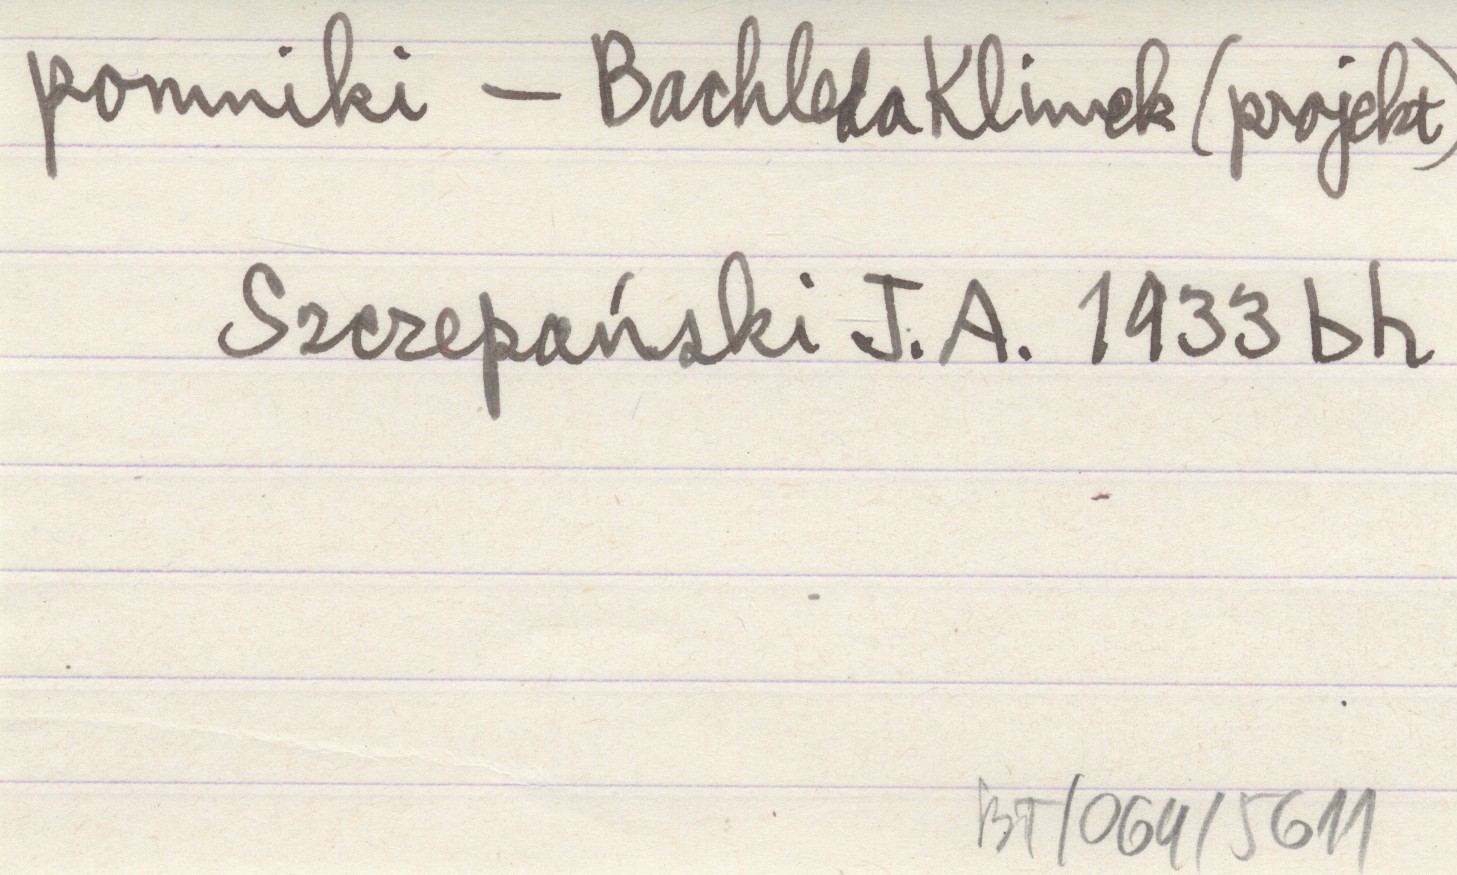 pomniki — Bachleda Klimek (projekt)
Szczepański J. A. 1933 bh
BT/064/5611